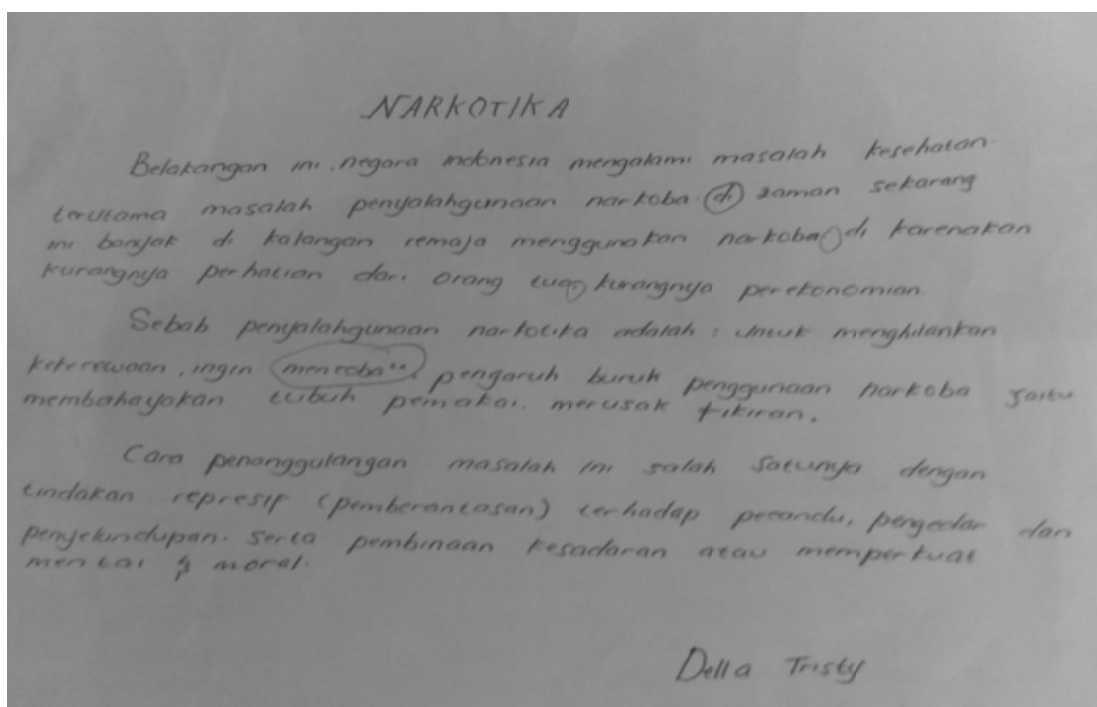 NARKOTIKA
Belakangan ini. negara indonesia mengalami masalah kesehatan.
terutama masalah penyalahgunaan narkoba. di zaman sekarang
ini banyak di kalangan remaja menggunakan narkoba di karenakan
kurangnya perhatian dari orang tua, kurangnya perekonomian.
Sebab penyalahgunaan narkotika adalah : untuk menghilankan
kekecewaan, ingin mencoba". pengaruh buruk penggunaan narkoba yaitu
membahayakan tubuh pemakai. merusak fikiran.
Cara penanggulangan masalah ini salah satunya dengan
tindakan represif (pemberantasan) terhadap pecandu, pengedar dan
penyelundupan. serta pembinaan kesadaran atau memperkuat
mental & moral.
Della Tristy